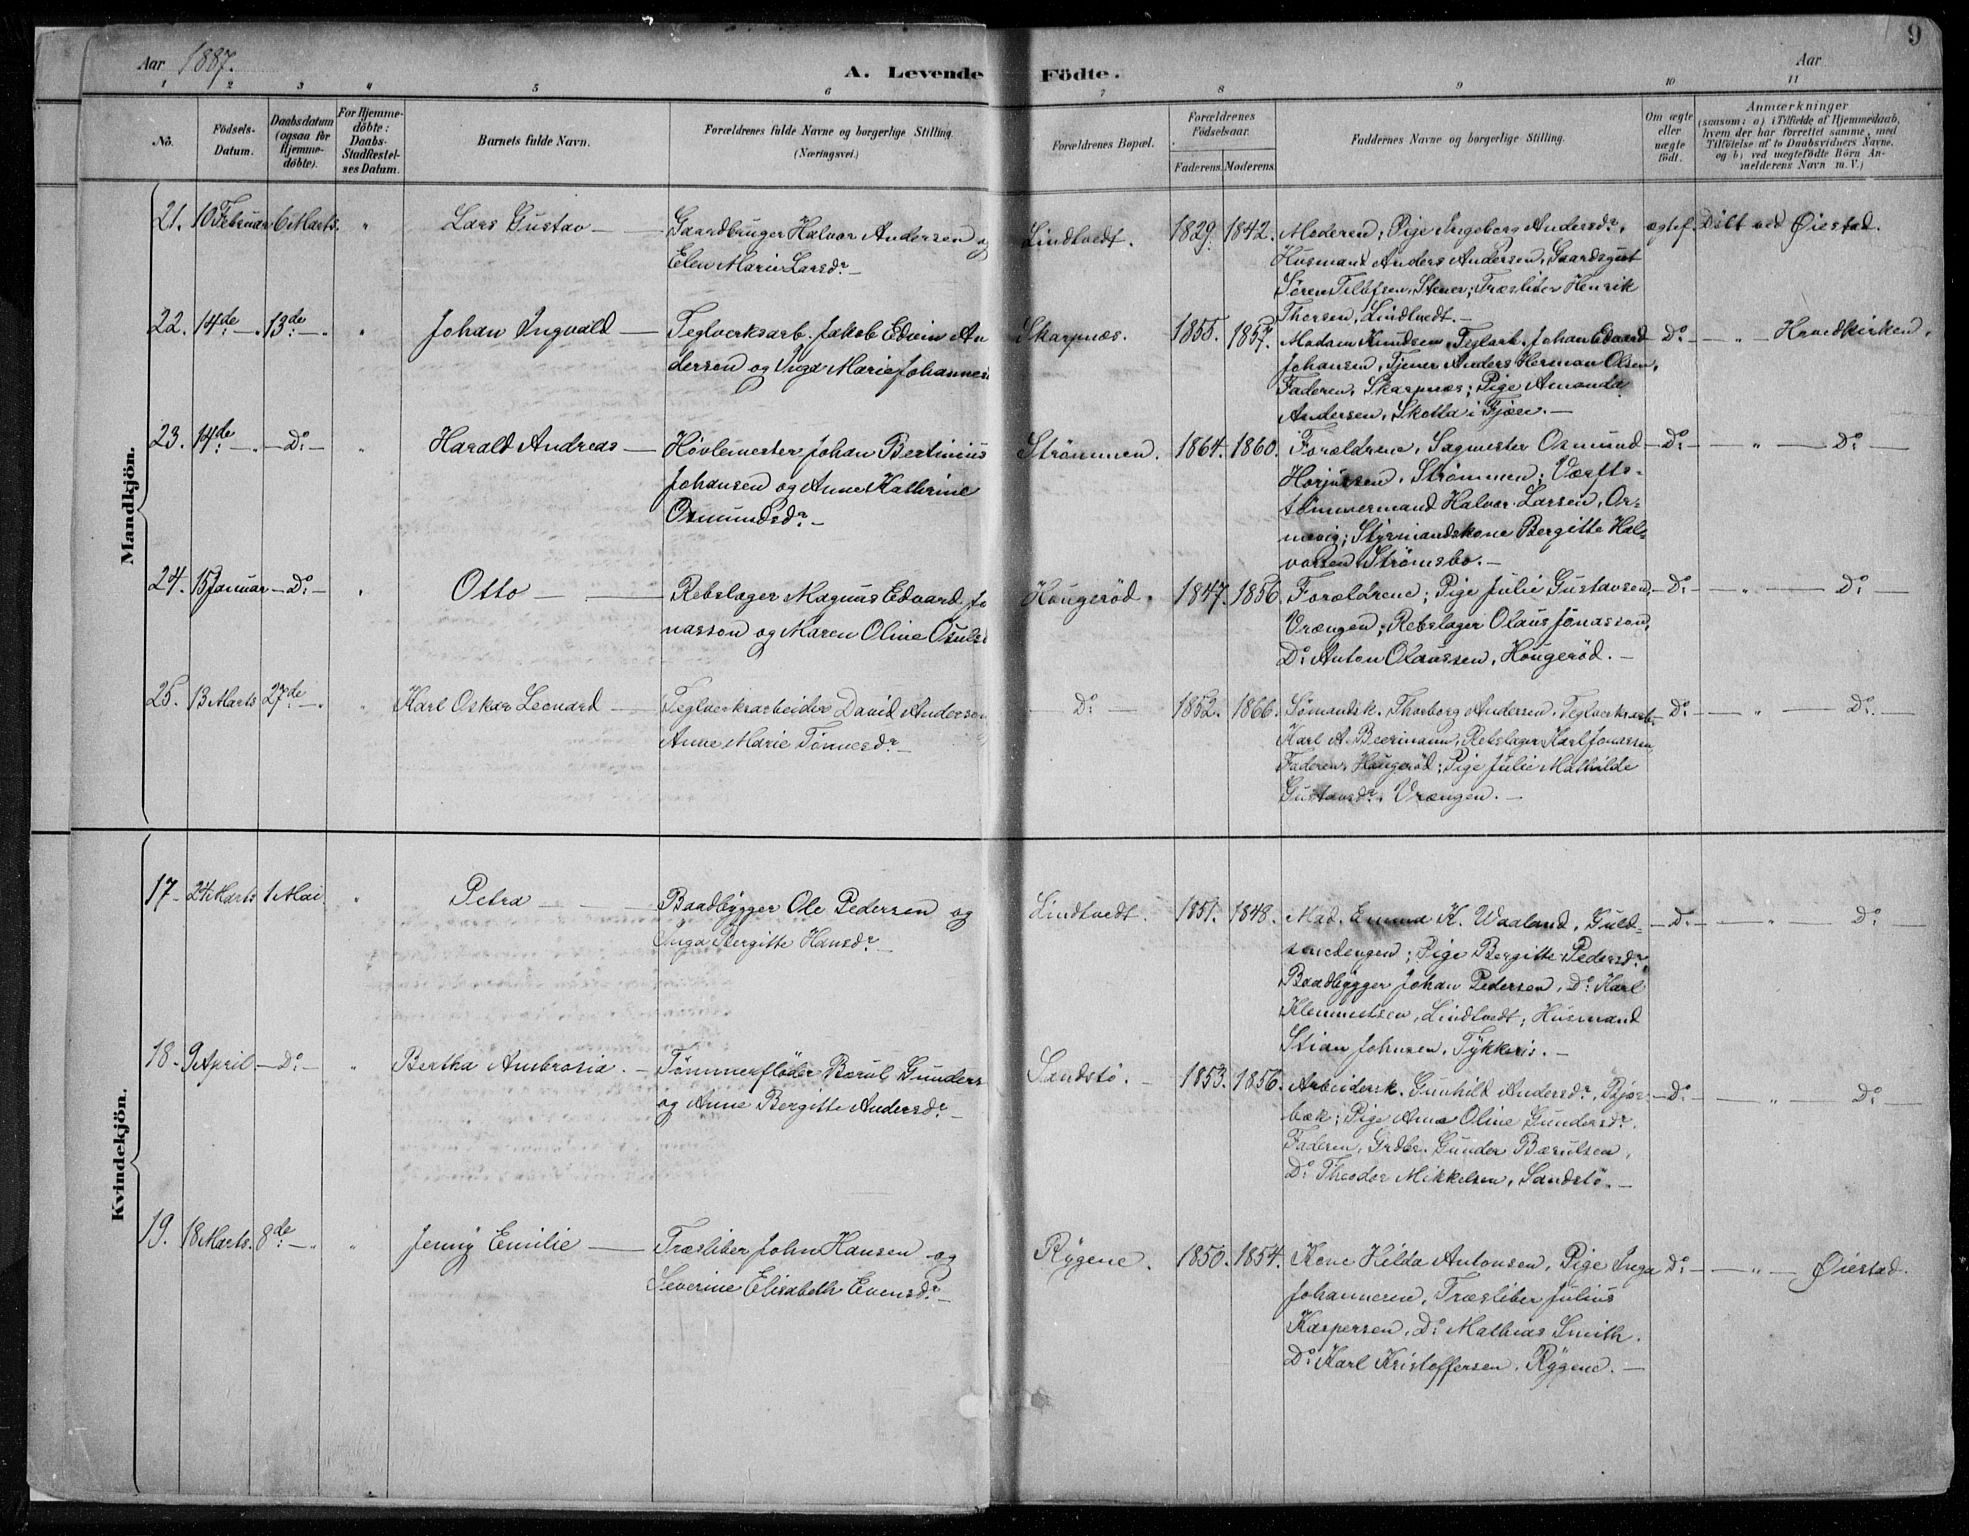 Aar 1887.
A. Levende Fødte.
Aar
9
1 2 3 4 5 6 7 8 9 10 11
No.
Fødsels-Datum.
Daabsdatum (ogsaa for Hjemmedøbte).
For Hjemmedøbte: Daabs-Stadfæstelses Datum.
Barnets fulde Navn.
Forældrenes fulde Navne og borgerlige Stilling. (Næringsvei.)
Forældrenes Bopæl.
Forældrenes Fødselsaar.
Faderens. Moderens.
Faddernes Navne og borgerlige Stilling.
Om ægte eller uægte født.
Anmærkninger
(saasom: a) i Tilfælde af Hjemmedaab, hvem der har forrettet samme, med Tilføielse af to Daabsvidners Navne, og b) ved uegtefødte Børn Anmelderens Navn m. V.)
Mandkjön.
21. 10 Februar 6 Marts. " Lars Gustav — Gaardbruger Halvor Andersen og
Elen Marie Larsdr. —
Lindtvedt. 1829. 1842. Moderen; Pige Ingeborg Andersdr.,
Husmand Anders Andersen, Gaardsgut
Søren Tellefsen, Stener; Træsliber Henrik
Thorsen, Lindtvedt. —
ægtef. Døbt ved Øiestad.
22. 14de —„ 13de —„ " Johan Ingvald — Teglverksarb. Jakob Edvin An
derson og Inga Marie Johannes
Skarpnæs. 1855. 1857. Madam Knudsen, Teglarb. Johan Edvard
Johansen, Tjener Anders Herman Olsen,
Faderen, Skarpnæs; Pige Amanda
Andersen, Skotta i Fjære. —
Do — „ — Hovedkirken.
23. 14de —„ — Do — " Harald Andreas — Høvlemester Johan Bertinius
Johansen og Anne Kathrine
Osmundsdr. —
Strømmen. 1864. 1860. Forældrene, Sagmester Osmund
Strømmen; Værfts-
tømmermand Halvor Larsen,
Styrmandskone Bergitte Hal-
vorsen Strømsbo. —
Do — „ — Do —
24. 15 Januar — Do — " Otto — Rebslager Magnus Edvard Jo
nassen og Maren Oline Osulsd
Hougerød. 1847. 1856. Forældrene; Pige Julie Gustavsen,
Vrængen; Rebslager Olaus Jonassen,
Do Anton Olaussen, Hougerød. —
Do — „ — Do —
25. 13 Marts 27de —„ " Karl Oskar Leonard — Teglverksarbeider David Anderson
Anne Marie Tønnesdr. —
— Do — 1852. 1866. Sømandsk. Thorborg Andersen, Teglverksarb.
Karl A. Beermann, Rebslager Karl Jonassen
Faderen, Hougerød; Pige Julie Mathilde
Gustavsdr., Vrængen. —
Do — „ — Do —
Kvindekjön.
17 24 Marts 1 Mai " Petra — Baadbygger Ole Pedersen og
Inga Bergitte Hansdr. —
Lindtvedt. 1851. 1848. Mad. Emma K. Waaland, Guld-
smedengen; Pige Bergitte Pedersdr.,
Baadbygger Johan Pedersen, Do Karl
Klemmetsen, Lindtvedt; Husmand
Stian Johnsen, Tykkeris. —
Do — „ — Do —
18. 9 April — Do — " Bertha Ambrosia. — Tømmerfløder Børul Gunders
og Anne Bergitte Andersdr. —
Sandstø. — 1853. 1856. Arbeidersk. Gunhild Andersdr., Bjør-
bæk; Pige Anna Oline Gundersdr.
Faderen, Grdbr. Gunder Bærulsen,
Do Theodor Mikkelsen, Sandstø. —
Do — „ — Do —
19. 18 Marts. 8de —„ " Jenny Emilie — Træsliber John Hansen og
Severine Elisabeth Evensdr. —
Rygene. 1850. 1854. Kone Hilda Antonsen, Pige Inga
Johannesen, Træsliber Julius
Kaspersen, Do Mathias Smith.
Do Karl Kristoffersen, Rygene. —
Do — „ — Øiestad.